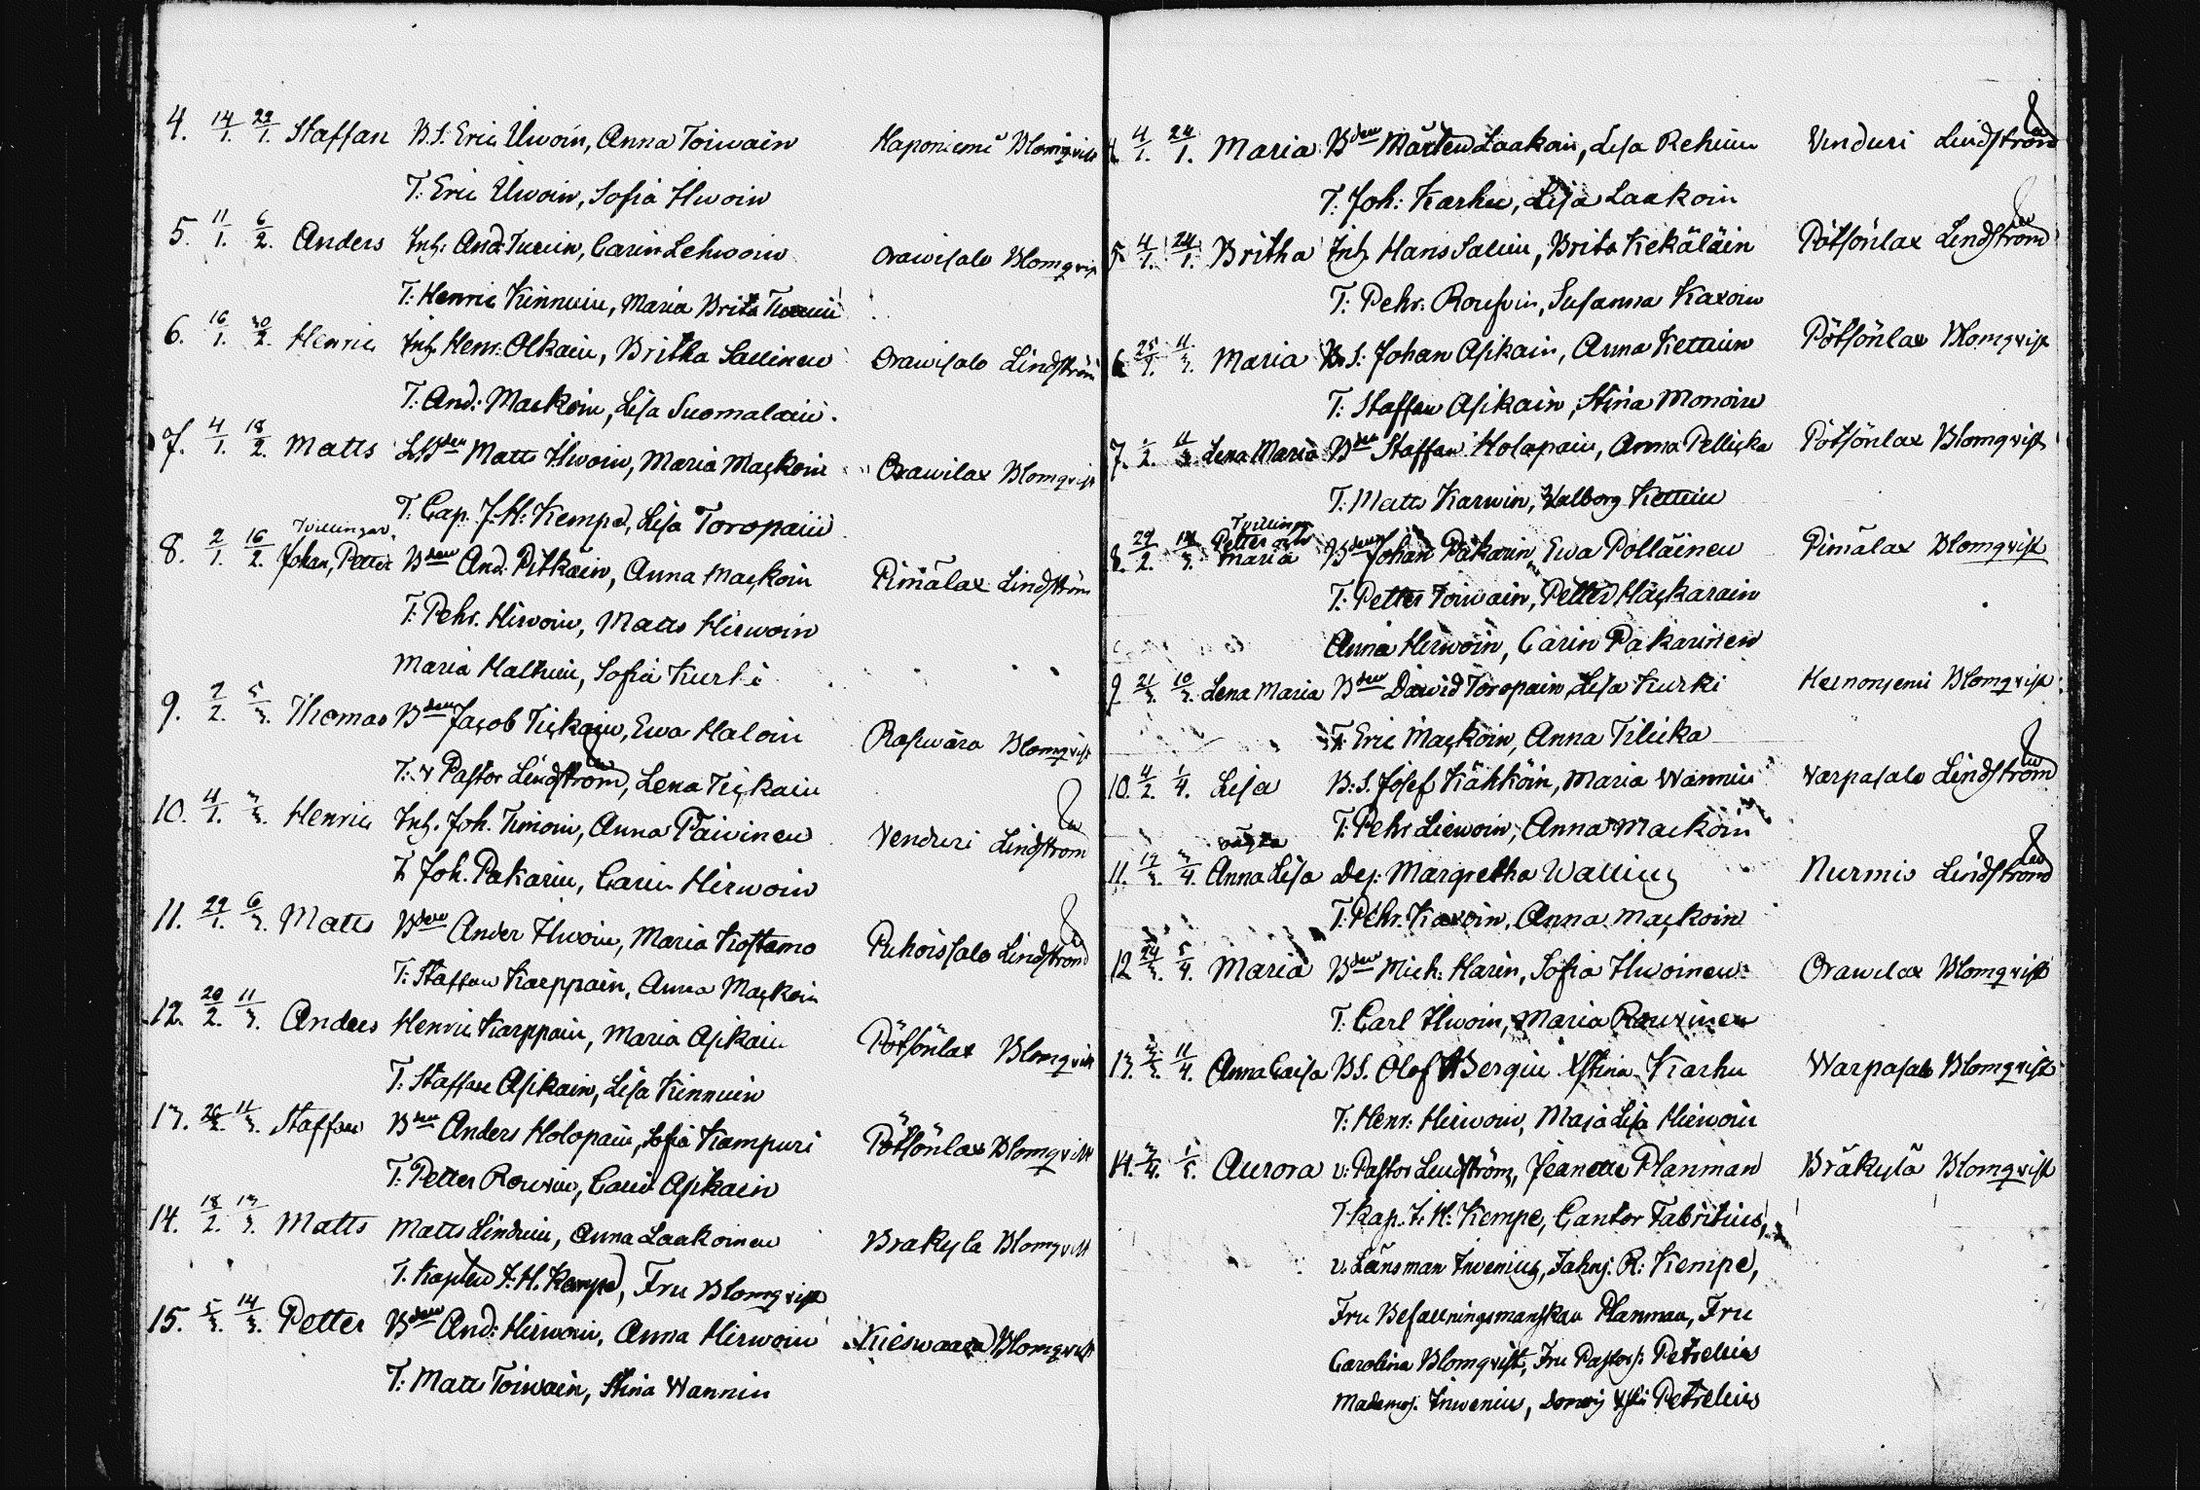 4. 14/1. 22/1. Staffan B.S. Eric Ihvoin, Anna Toivain Haponiemi Blomqvist
T: Eric Ihvoin, Sofia Ihvoin
5. 11/1. 6/2. Anders Inh: And: Carin Lehvoin Orawisalo Blomqvist
T: Henric Kinnuin, Maria Brita
6. 16/1. 2. Henric Inh. Henr. Olkain, Britha Sallinen Orawisalo Lindström
T: And: Mackoin, Lisa Suomalain.
7. 4/1. 18/2. Matts Matts Ihvoin, Maria Mackoin Orawilax Blomqvist
T. Cap. J. H: Kempe, Lisa Toropain
Tvillingar
8. 2/1. 16/2. Johan, Petter Bden And. Pitkain, Anna Mackoin Pimälax Lindström
T: Pehr. Hirvoin, Matts Hirwoin
Maria Halttuin, Sofia Kurki
9. 2/2. 5/3. Thomas Bden Jacob Tickain, Ewa Haloin Raswara Blomqvist
T: v Pastor Lindström, Lena Tickain
10. 4/1. 3/3. Henric Inh. Joh. Timoin, Anna Päivinen Venduri Lindström
T. Joh. Pakarin, Carin Hirwoin
11. 29/1. 6/3. Matts Bden Ander Ihvoin, Maria Kostamo Puhoissalo Lindström
T: Staffan Karppain, Anna Mackoin
12. 20/2. 11/3. Anders Henric Karppain, Maria Asikain Pötsönlax Blomqvist
T: Staffan Asikain, Lisa Kinnuin
13. 11/3. Staffan Bden Anders Holopain, Sofia Kampuri Pötsönlax Blomqvist
T. Petter Rouvin, Carin Asikain
14. 18/2. 13/3. Matts Matts Lindruin, Anna Laakoinen Brakyla Blomqvist
T. Kapten J. H. Kempe, Fru Blomqvist
15. 5/3. 14/3. Petter Bden And: Hirwoin, Anna Hirwoin Kieswaara Blomqvist
T: Matts Toivain, Stina Wannin
4/1. 24/1. Maria Bden Mårten Laakoin, Lisa Rehuin Venduri Lindström
T. Joh: Karhu, Lisa Laakoin
5 4/1. 24/1. Britha Inh Hans Salin, Brita Kekäläin Pötsönlax Lindström
T: Pehr. Rouvin, Susanna Kaxoin
6 11/3. Maria B.S: Johan Asikain, Anna Kettuin Pötsönlax Blomqvist
T: Staffan Asikain, Stina Monoin
7. 1/2. 11/3. Lena Maria Bden Staffan Holopain, Anna Pellicka Pötsönlax Blomqvist
T: Matts Karwin, Walborg Kettuin
Tvillingar
8. 29/2. 3. Petter och Maria Bden Johan Pakarin, Ewa Polläinen Pimälax Blomqvist
T: Petter Toiwain, Petter Häckarain
Anna Hirwoin, Carin Pakarinen
9 21/2. 10/3. Lena Maria Bden Dawid Toropain, Lisa Kurki Hernonjemi Blomqvist
T. Eric Mackoin, Anna Tilicka
10. 4/2. 1/4. Lisa B.S. Josef Kähköin, Maria Wannin Varpasalo Lindström
T: Pehr Liewoin, Anna Mackoin
11. 12/3. 3/4. Anna Lisa Dej: Margretha Wallius Nurmis Lindström
T. Pehr. Kaxoin, Anna Mackoin
12 24/3. 5/4. Maria Bden Mich. Harin, Sofia Ihvoinen Orawilax Blomqvist
T. Carl Ihvoin, Maria Rouvinen
13. 11/4. Anna Caisa BS. Olof Bergin Xstina Karhu Warpasalo Blomqvist
T: Henr. Hirwoin, Maja Lisa Hirwoin
14. 3/4. 1/5. Aurora v: Pastor Lindström, Jeanette Planman Bräkylä Blomqvist
T. Kap. J. H: Kempe, Cantor Fabritius,
v. Länsman Inwenius, Fahnj. R: Kempe,
Fru Befallningsmanskan Planman, Fru
Carolina Blomqvist, Fru Pastorsk Petrelius
Mademoj. Inwenius, Petrelius